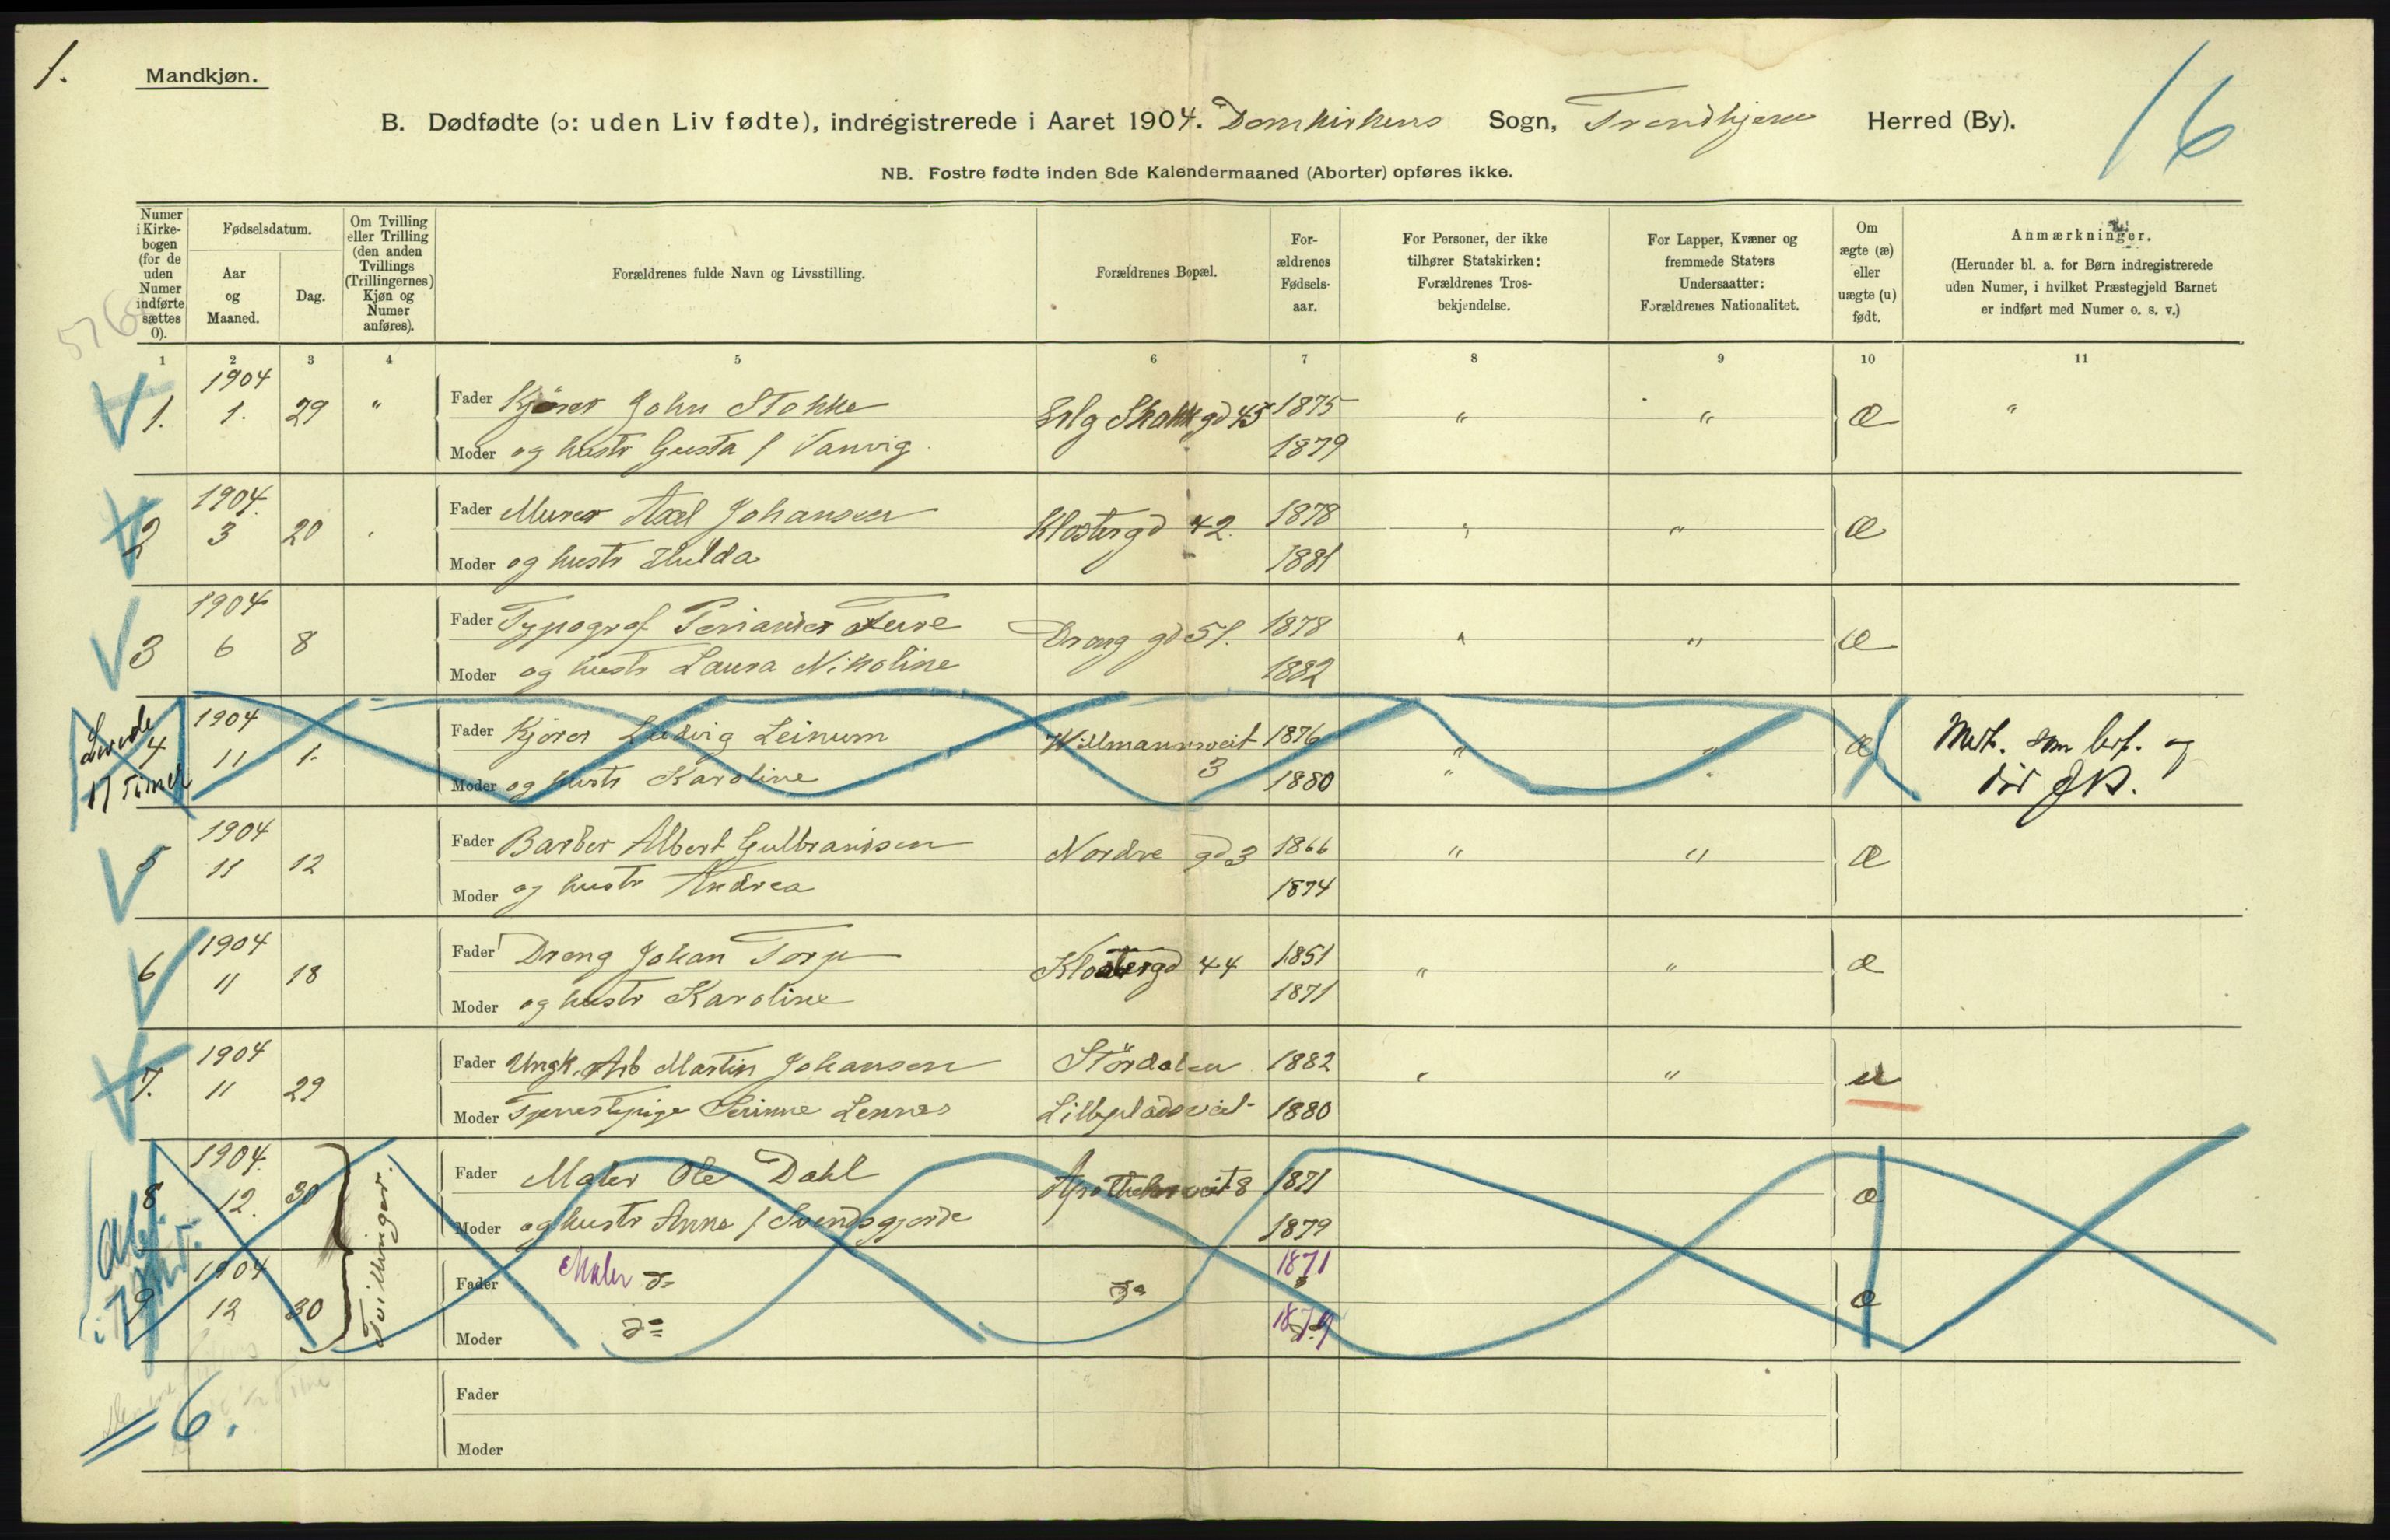 1.
Mandkjøn.
16
B. Dødfødte (ɔ: uden Liv fødte), indregistrerede i Aaret 1904. Domkirkens Sogn, Trondhjem Herred (By).
NB. Fostre fødte inden 8de Kalendermaaned (Aborter) opføres ikke.
Numer i Kirke-bogen (for de uden Numer indførte sættes 0).
Fødselsdatum.
Aar og Maaned.
Dag.
Om Tvilling eller Trilling (den anden Tvillings (Trillingernes) Kjøn og Numer anføres).
Forældrenes fulde Navn og Livsstilling.
Forældrenes Bopæl.
For-ældrenes Fødsels-aar.
For Personer, der ikke tilhører Statskirken: Forældrenes Tros-bekjendelse.
For Lapper, Kvæner og fremmede Staters Undersaatter: Forældrenes Nationalitet.
Om ægte (æ) eller uægte (u) født.
Anmærkninger.
(Herunder bl. a. for Børn indregistrerede uden Numer, i hvilket Præstegjeld Barnet er indført med Numer o. s. v.)
576
1 2 3 4 5 6 7 8 9 10 11
1904
1. 1. 29 " Fader Kjører John Stokke Erlg Skakk gd 45 1875 " " æ "
Moder og hustr Gusta f Vanvig 1879
1904.
2 3 20 Fader Murer Axel Johansen Klostergd 42. 1878 " " æ
Moder og hustr Hulda 1881
1904
3 6 8 Fader Typograf Periander Fure Drong gd 51. 1878 " " æ
Moder og hustr Laura Nikoline 1882
Levede 1904
4 11 1. Fader Kjører Ludvig Leinum Willmannsveit 1876 " " æ Medt. som lev. og
17 Timer Moder og hustr Karoline 3 1880 " " død
1904
5 11 12 Fader Barber Albert Gulbrandsen Nordre gd 3 1866 " " æ
Moder og hustr Andrea 1874
1904
6 11 18 Fader Dreng Johan Torp Klostergd 44 1851 " " æ
Moder og hustr Karoline 1871
1904
7. 11 29 Fader Ungk. Arb Martin Johansen Stördalen 1882 " " u
Moder Tjenestepige Serinne Lennes Lillepladsveit 1880
1904.
8 12. 30 Tvillinger. Fader Maler Ole Dahl Apothekerveit 8 1871 æ
Moder og hustr Anna f Svendsgjerde 1879
1904 1871
9 12 30 Fader Maler do do æ
Moder do 1879
Fader
6.
Moder